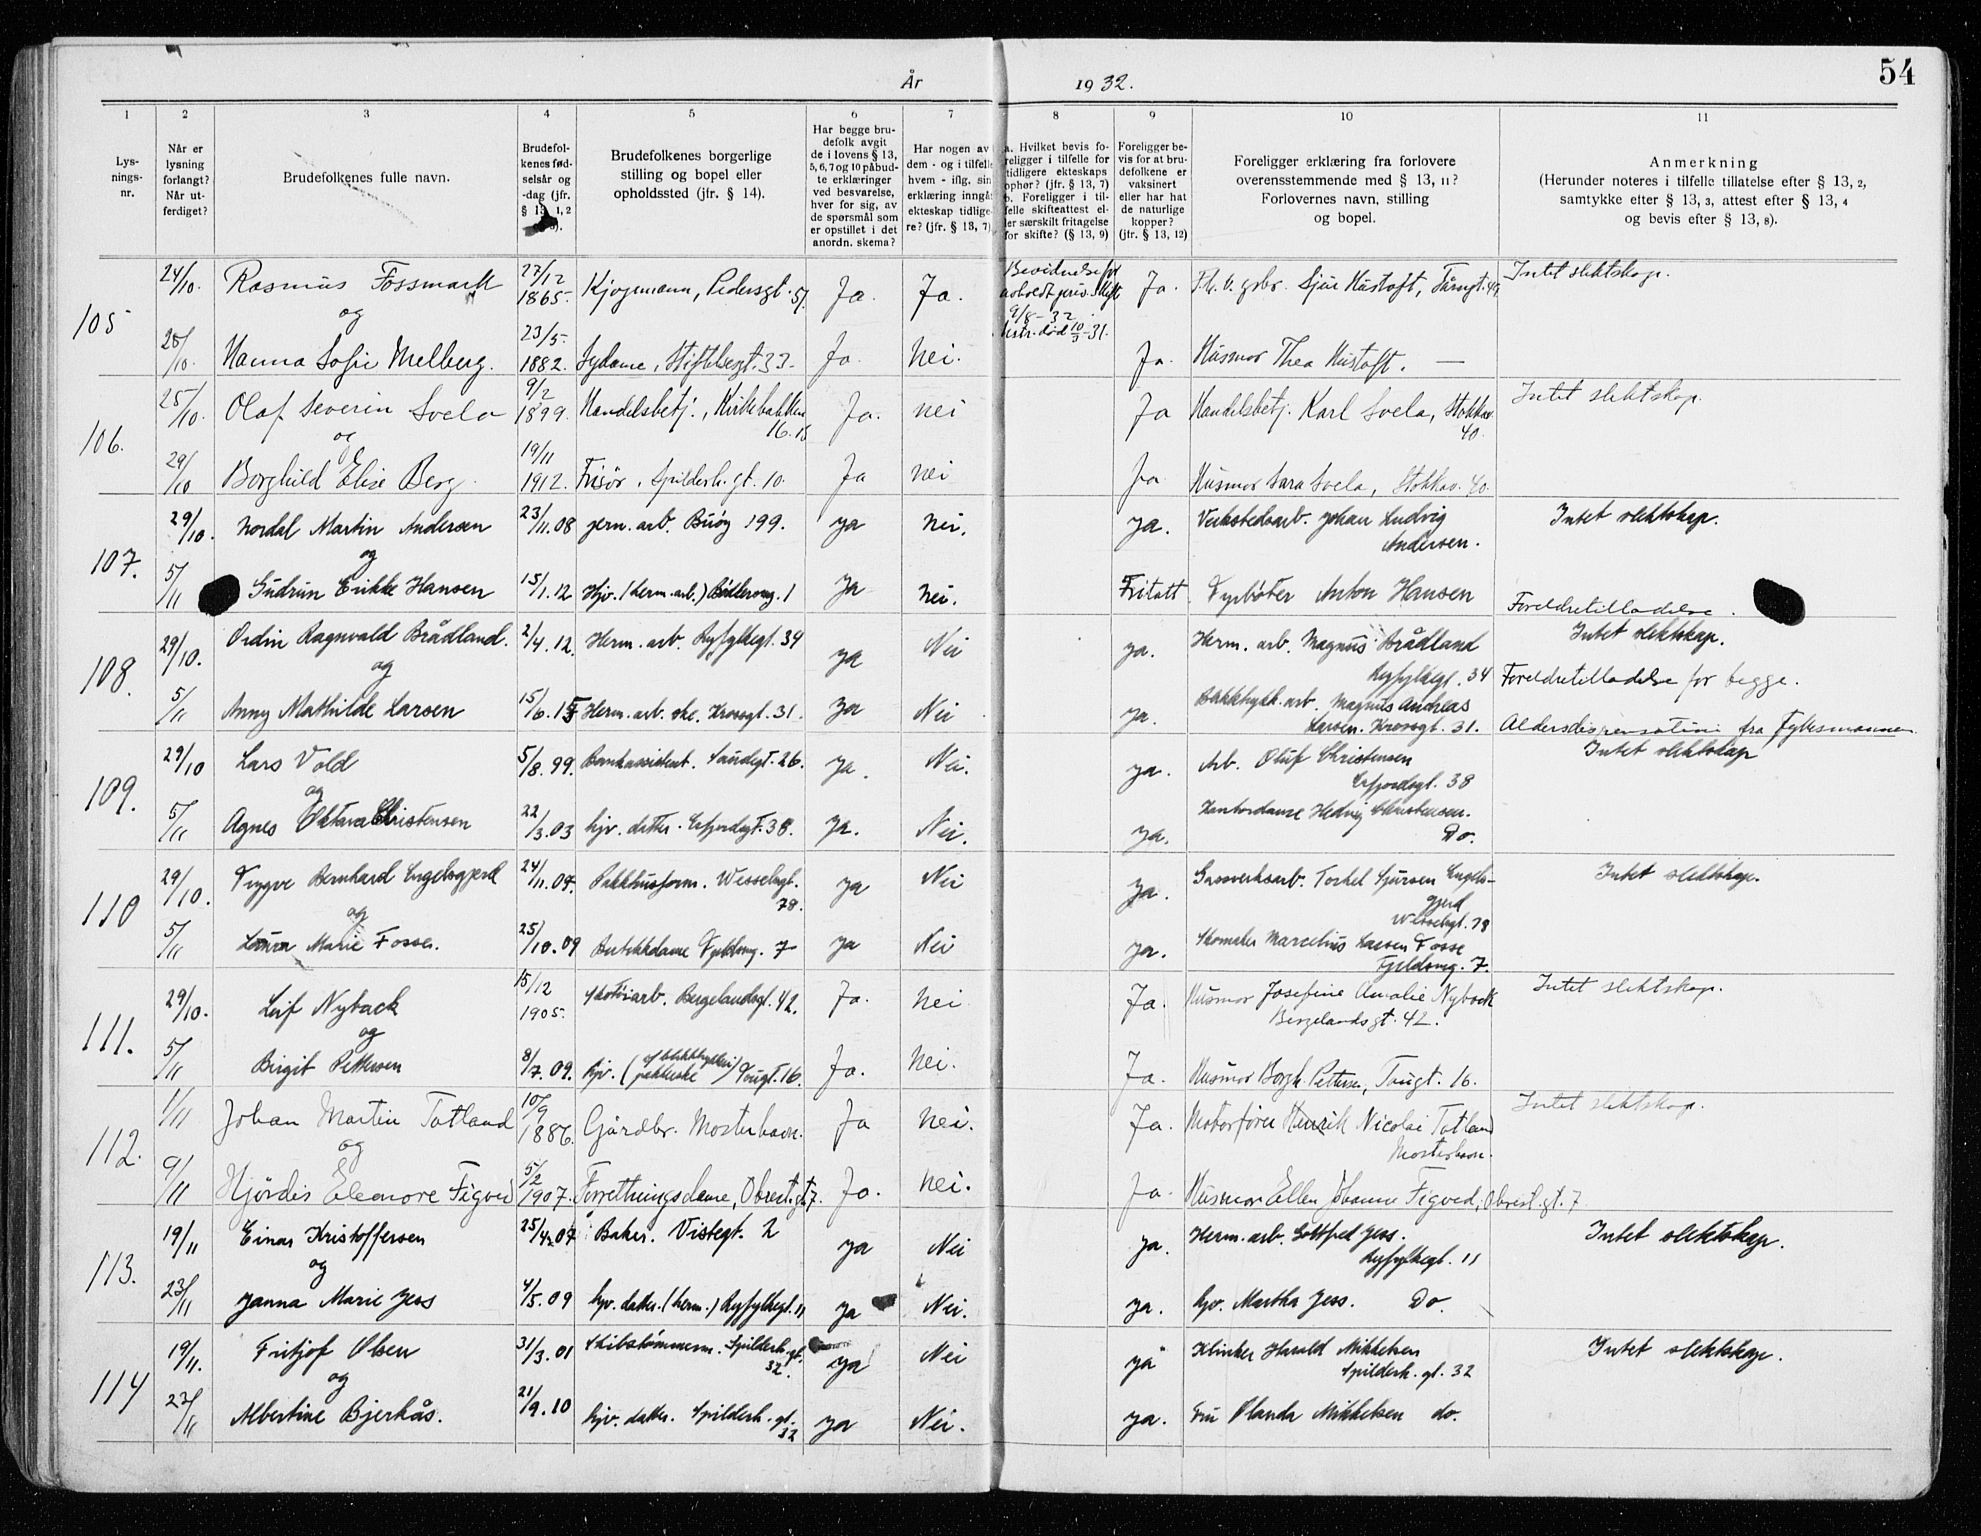 54
År 1932.
1 2 3 4 5 6 7 8 9 10 11
Lysningsnr.
Når er lysning forlangt? Når utferdiget?
Brudefolkenes fulle navn.
Brudefolkenes fødselsår og -dag (jfr. § 13, 1, 2
Brudefolkenes borgerlige stilling og bopel eller opholdssted (jfr. § 14).
Har begge brudefolk avgit de i lovens § 13, 5, 6, 7 og 10 påbudte erklæringer ved besvarelse, hver for sig, av de spørsmål som er opstillet i det anordn. skema?
Har nogen av dem - og i tilfelle hvem - iflg. sin erklæring inngåt ekteskap tidligere? (jfr. § 13, 7)
a. Hvilket bevis foreligger i tilfelle for tidligere ekteskaps ophør? (jfr. § 13, 7) b. Foreligger i tilfelle skifteattest eller særskilt fritagelse for skifte? (§ 13, 9)
Foreligger bevis for at brudefolkene er vaksinert eller har hat de naturlige kopper? (jfr. § 13, 12)
Foreligger erklæring fra forlovere overensstemmende med § 13, 11? Forlovernes navn, stilling og bopel.
Anmerkning
(Herunder noteres i tilfelle tillatelse efter § 13, 2, samtykke efter § 13, 3, attest efter § 13, 4 og bevis efter § 13, 8).
105 24/10. Rasmus Fossmark 27/12 1865. Kjøpmann, Pedersgt. 57. Ja. Ja. 9/8-32 død 10/3-31. Ja. Sjur Hustoft, Intet slektskap.
og
Hanna Sofie Melberg. 23/5- 1882. Sydame, Ja. Nei. Ja. Husmor Thea Hustoft. —
106. 25/10. Olaf Severin Svela 9/2 1899. Handelsbetj., Kirkebakken 16. Ja. nei Ja Handelsbetj. Karl Svela, Stokkav. 40. Intet slektskap.
og
29/10 Borghild Elise Berg. 19/11 1912. Frisør, Spilderh.gt. 10. Ja nei Ja Husmor Sara Svela, Stokkav. 40.
107. 29/10. Nordal Martin Andersen 23/11.08 jern. arb. Buøy 199. ja nei. ja. Verkstedsarb. Johan Ludvig Andersen. Intet slektskap.
og
5/11 Gudrun Erikke Hansen 15/1.12 Hjv. (herm. arb.) 1 ja nei. Fritatt. Fyrbøter Anton Hansen Foreldretilladelse.
108. 29/10. Ordin Ragnvald Brådland. 2/4.12. Herm. arb. Ryfylkegt. 34 ja Nei ja. Herm. arb. Magnus Brådland Ryfylkegt. 34 Intet slektskap.
og
Foreldretilladelse for begge.
5/11 Anny Mathilde Larsen 15/6.15 Herm. arb. ske. Krossgt. 31. ja Nei ja. arb. Magnus Andreas Larsen. Krossgt. 31. Aldersdispensation fra Fylkesmannen
109. 29/10 Lars Vold 5/8.99. Bankassistent. Sandegt. 26. ja. Nei. ja. Arb. Oluf Christensen Erfjordsgt. 38 Intet slektskap
og
5/11 Agnes Oktava Christensen 22/3.03 hjv. datter. Erfjordsgt. 38. ja. Nei. ja. Kontordame Hedvig Christensen. Do.
110 29/10. Trygve Bernhard Engelsgjerd 24/11.07. Pakkhusform. Wesselsgt. 78. ja Nei ja. Gassverksarb. Torkel Sjursen Engelsgjerd Wesselsgt. 78 Intet slektskap.
og
5/11 Laura Marie Fosse. 25/10.09 Butikkdame Fjeldsvg. 7 ja Nei ja. Skomaker Marcelius Larsen Fosse Fjeldsvg. 7.
111. 29/10. Leif Nyback 15/12 1905. Bergelandsgt. 42. Ja. nei Ja. Husmor Josefine Amalie Nyback Bergelandsgt. 42. Intet slektskap.
og
5/11 Birgit Pettersen 8/7.09. hjv. Ja. nei. Ja. Husmor Borgh. Pettersen, 16.
112. 1/11 Johan Martin Totland 10/9 1886. Gårdbr. Mosterhavn. Ja nei. Ja. Motorfører Henrik Nicolai Totland Mosterhavn. Intet slektskap.
og
9/11 Hjørdis Eleonore Figved 5/2 1907. Forretningsdame, Obrest.gt. 7. Ja. nei. Ja. Husmor Ellen Johanne Figved, Obrest.gt. 7
113. 19/11 Einar Kristoffersen 25/4.07 Baker. Vistegt. 2 ja Nei ja. Herm. arb. Gottfred Jess. Ryfylkegt. 11 Intet slektskap.
og
23/11 Janna Marie Jess 4/5.09 hjv. datter. (herm.) Ryfylkegt. 11 ja Nei. ja. hjv. Martha Jess. Do.
114 19/11. Fritjof Olsen 31/3.01 Skibstømmerm. Spilderh.gt. 32. ja Nei ja Klinker Harald Mikkelsen Spilderh.gt. 32 Intet slektskap.
og
23/11 Albertine Bjerkås. 21/9.10 hjv. datter. Spilderh.gt. 32 ja Nei. ja. Fru Olanda Mikkelsen do.